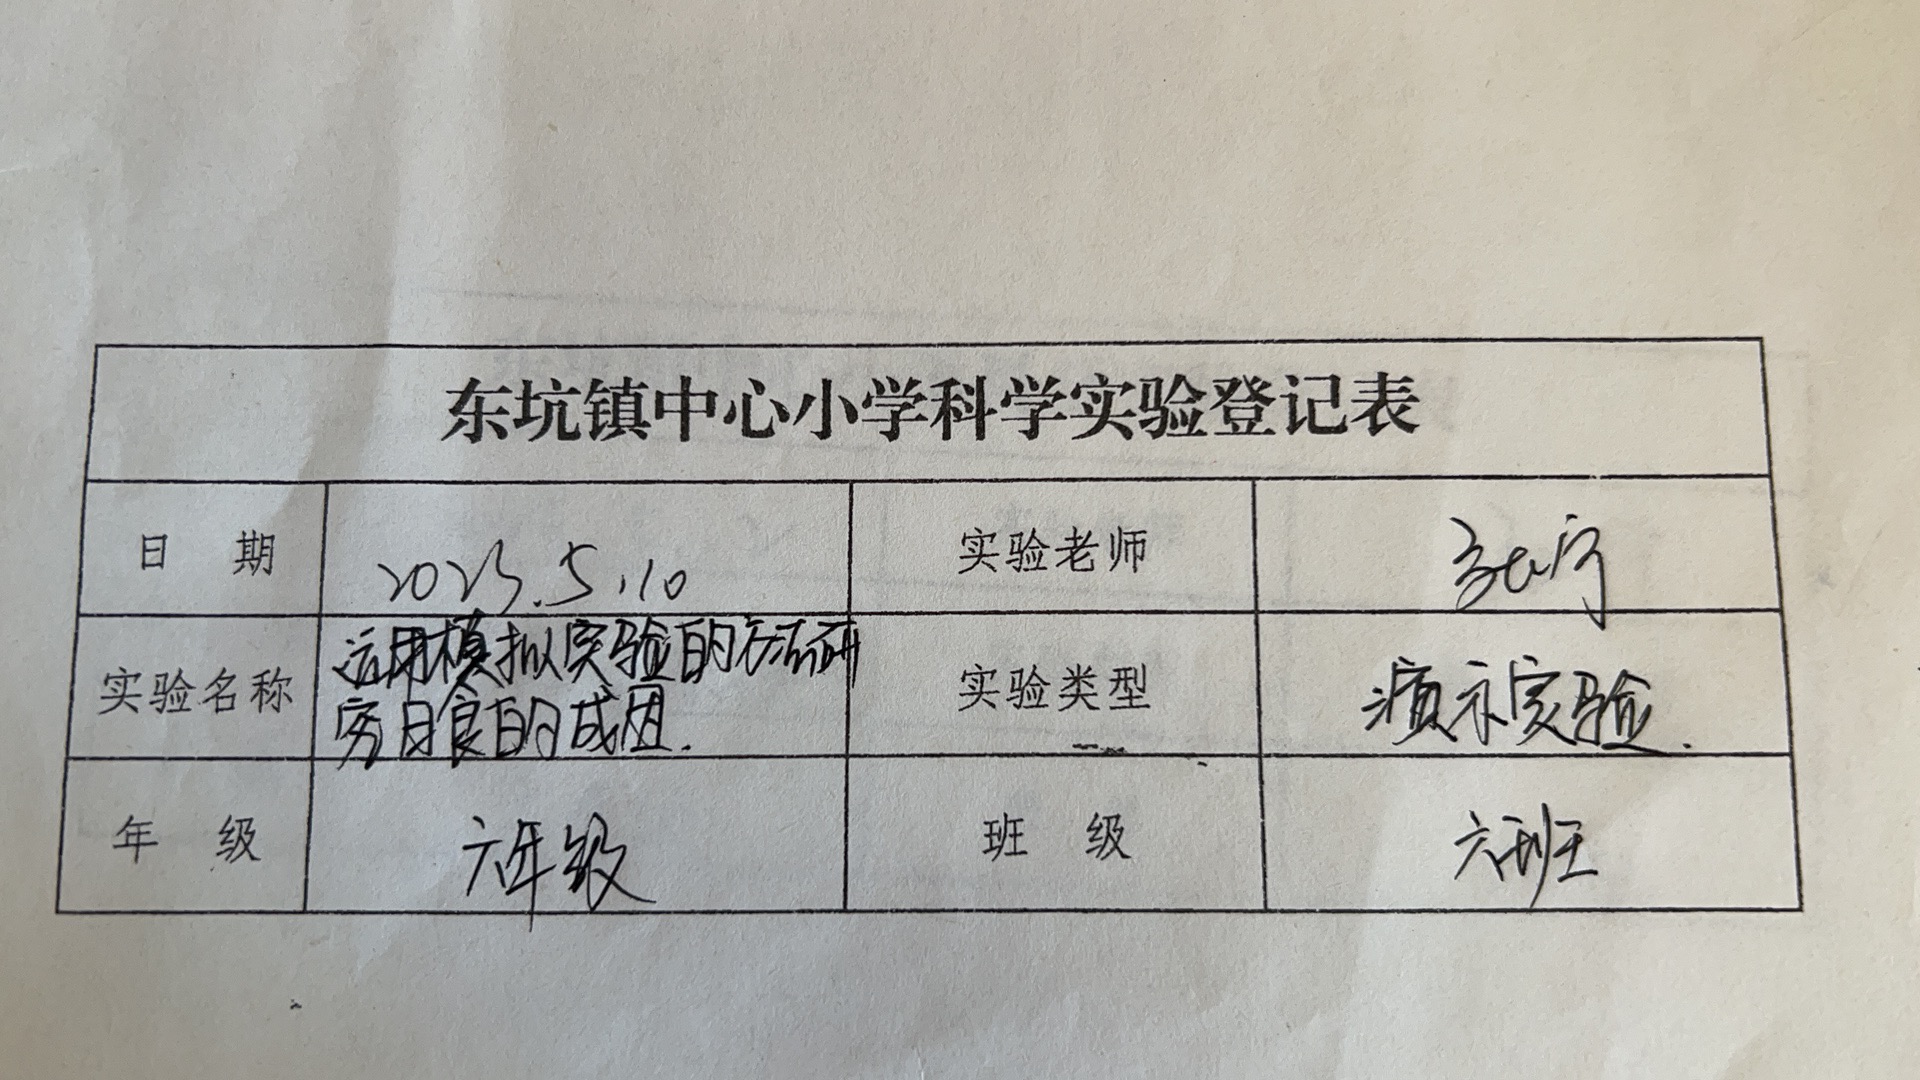 东坑镇中心小学科学实验登记表
日期 2023.5.10 实验老师
实验名称 运用模拟实验的方法研 实验类型 演示实验.
究日食的成因.
年级 六年级 班级 六班